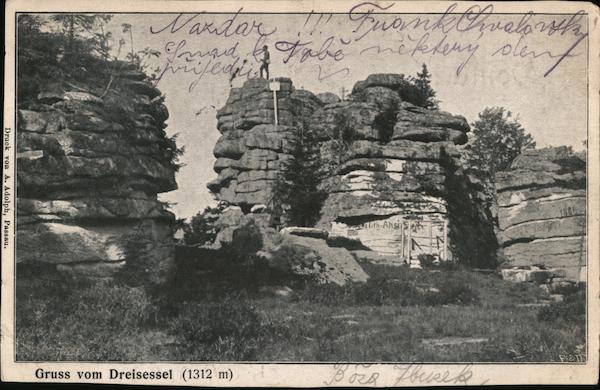 Nazdar !!! Frank Chvalovský
Snad k Tobě některý den
přijedu
Druck von A. Adolph, Passau.
Gruss vom Dreisessel (1312 m)